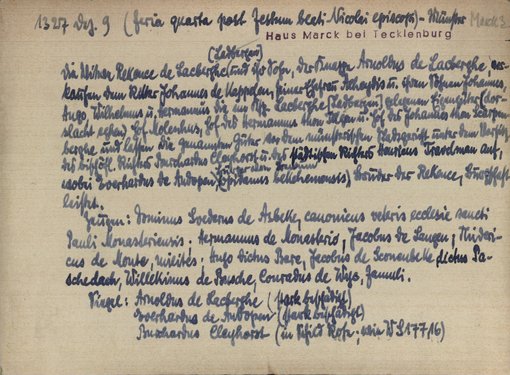 1327 Dez. 9 (feria quarta post festum beati Nicolai episcopi) - Münster Marck 3
Haus Marck bei Tecklenburg
(Ladbergen)
Die Witwe Rekence de Lacberghe und ihr Sohn, der Knappe Arnoldus de Lacberghe, ver-
kaufen dem Ritter Johannes de Keppelen, seiner Ehefrau und ihren Söhnen Johannes,
Hugo, Wilhelmus u. Hermannus die im Ksp. Lacberghe (Ladbergen) gelegenen Eigengüter
Hof Holenhus, Hof des Hermannus thon und Hof des Johannes thon
berghe und lassen die genannten Güter vor dem münsterischen Stadtgericht unter dem Vorsitz
des bischöfl. Richters Burchardus Cleyhorst u. des städtischen Richters Travelman auf,
wobei Everhardus de Andopen, Bruder der Rekence, Bürgschaft
leistet.
Zeugen: Dominus Godardus de Asbeke, canonicus veteris ecclesie sancti
Pauli Monasteriensis, Hermannus de Monasterio, Jacobus de Langen, Thideri-
cus de Monte, milites. Hugo dictus Bare, Jacobus de Sconenbeke dictus Pa-
schedach, Willekinus de Busche, Conradus de Wys, famuli.
Siegel: Arnoldus de Lacberghe (stark beschädigt)
Everhardus de Andopen (stark beschädigt)
Burchardus Cleyhorst (im Schild Rose; wie WS 177,16)